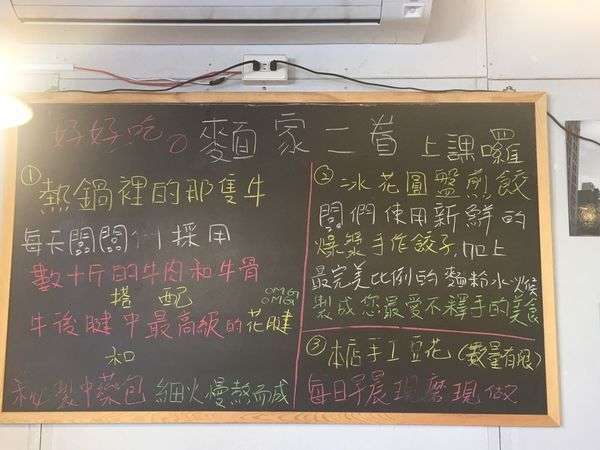 好好吃。麵家二首 上課囉
①熱鍋裡的那隻牛
每天闆闆們採用
數十斤的牛肉和牛骨
搭配 OMG! OMG!
牛後腱中最高級的花腱
和
秘製中藥包 細火慢熬而成
②冰花圓盤煎餃
闆們使用新鮮的
爆漿手作餃子,加上
最完美比例的麵粉水火候
製成您最愛不釋手的美食
③本店手工豆花(數量有限)
每日早晨現磨現做